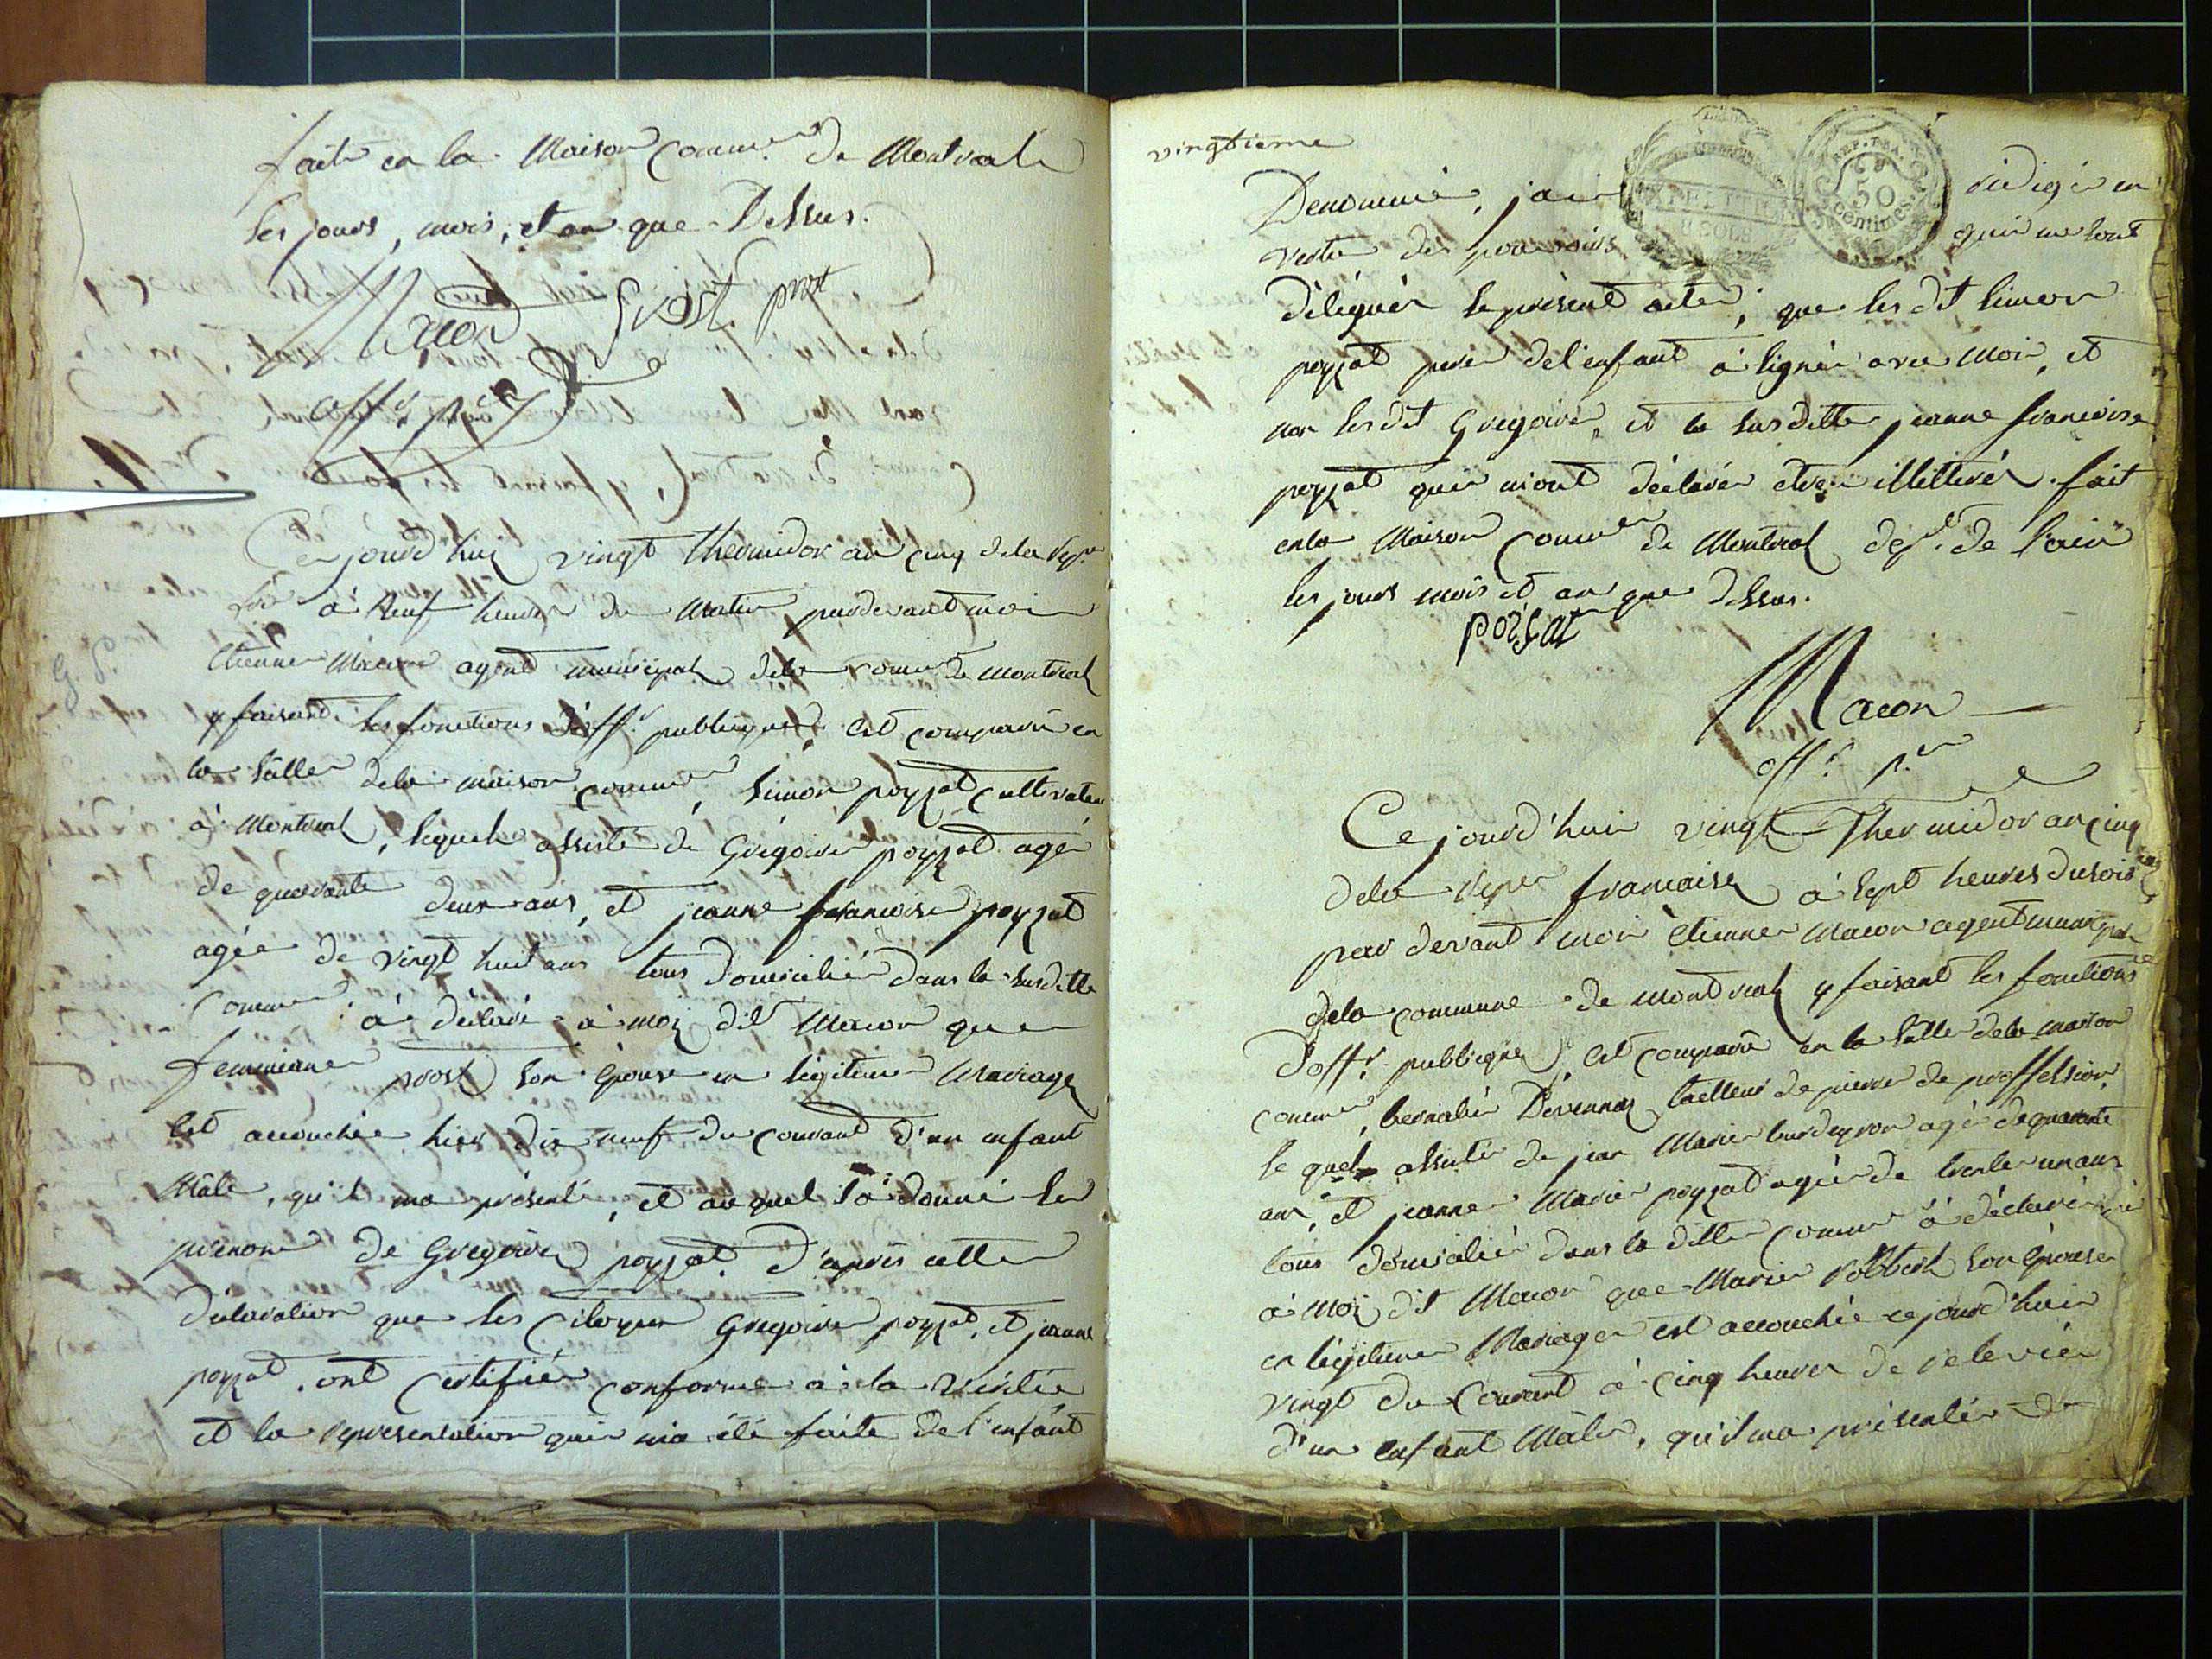 faite en la Maison Comm.ne de Montreal
les jours, mois, et an que Dessus.
Macon prost prost
off.r p.er
Ce jourd'huy vingt thermidor an cinq de la Rep.e
f.se à Neuf heures du Matin pardevant moi
Etienne Macon agent municipal dela comm.e de montreal
y faisant les fonctions d'off.r publique, est comparu en
la salle dela maison comm.e, Simon poyzat cultivateur
à Montreal, lequel assisté de Grégoire poyzat agé
de quarante deux ans, et jeanne francoise poyzat
agée de vingt huit ans tous domicilié dans la susditte
Comm.e à déclaré à moi dit Macon que
femmianne prost son épouse en légitime Mariage
est accouchée hier dix neuf du courant d'un enfant
Mâle, qu'il ma présenté, et auquel il à donné le
prenom de Gregoire poyzat. D'après cette
declaration que les Citoyens Gregoire poyzat, et jeanne
poyzat, ont certifiée conforme à la véritée
et la représentation qui m'a été faite de l'enfant
vingtieme
Denommé, j'ai rédigé en
vertu des pouvoirs qui me sont
délégués le présent acte, que les dit simon
poyzat pere de l'enfant à signé avec Moi, et
non les dit Gregoire, et la susditte jeanne francoise
poyzat qui m'ont déclaré etre illitterés. fait
en la Maison Comm.e de Montreal dep.t de l'ain
les jours mois et an que dessus.
poisat
Macon
off.r p.er
Ce jourd'hui vingt Thermidor an cinq
dela Repe francaise à sept heures du soir
par devant moi Etienne Macon agent municipal
dela commune de montreal y faisant les fonctions
d'off.r publique, est comparu en la salle dela maison
comm.e, Devennas tailleur de pierre de proffession,
le quel assisté de jean Marie bourdeyron agé de quarante
ans, et jeanne Marie poyzat agée de trente un ans
tous domicilié dans la ditte comm.e à déclaré
à Moi dit Macon que Marie robbert son épouse
en légitime Mariage est accouchée ce jourd'hui
vingt du Courant à cinq heures de relevée
d'un enfant Mâle, qu'il ma présenté
REP. FRA.
50
centimes